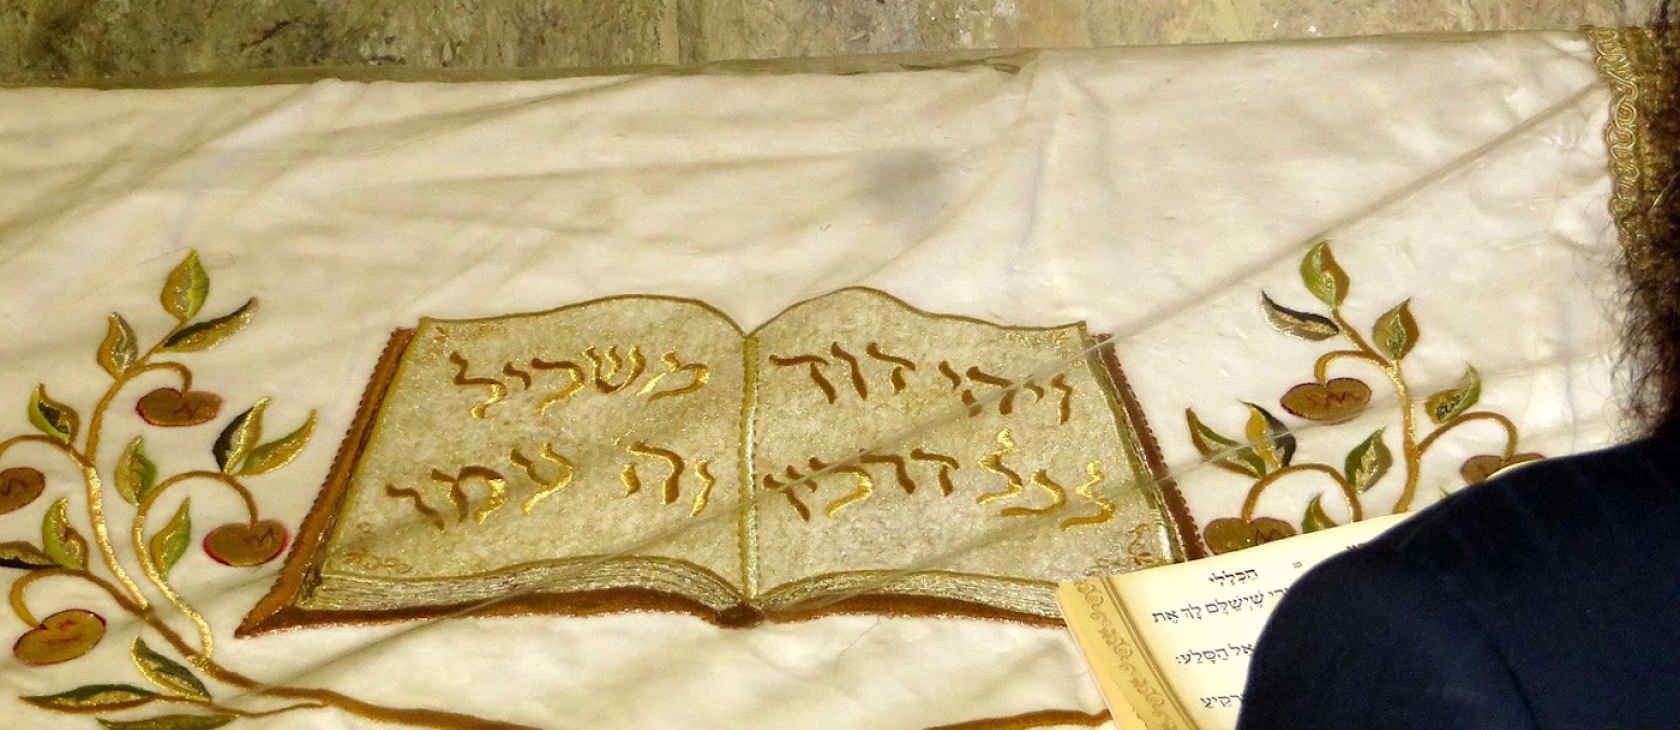 ויהי דוד
בכל דרכיו
משכיל
וה עמו
הַכְּלָלִי
שֶׁיְשַׁלֵּם לָךְ אֶת
אֶל הַסָּלַע: